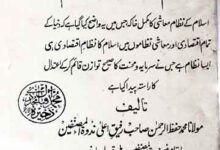 اسلام کے نظام معاشی کا مکمل خاکہ جس میں یہ واضح کیا گیا ہے کہ دنیا کے
تمام اقتصادی اور معاشی نظاموں میں اسلام کا نظام اقتصادی ہی
ایسا نظام ہے جس نے سرمایہ و محنت کا صحیح توازن قائم کر کے اعتدال
کا راستہ پیدا کیا ہے
تالیف
مولانا محمد حفظ الرحمٰن صاحب رفیق اعلیٰ ندوۃ المصنفین